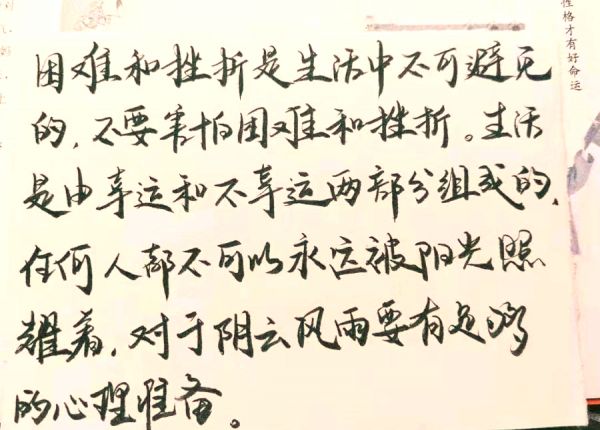 困难和挫折是生活中不可避免
的,不要害怕困难和挫折。生活
是由幸运和不幸运两部分组成的,
任何人都不可以永远被阳光照
耀着,对于阴云风雨要有足够
的心理准备。
性格才有好命运